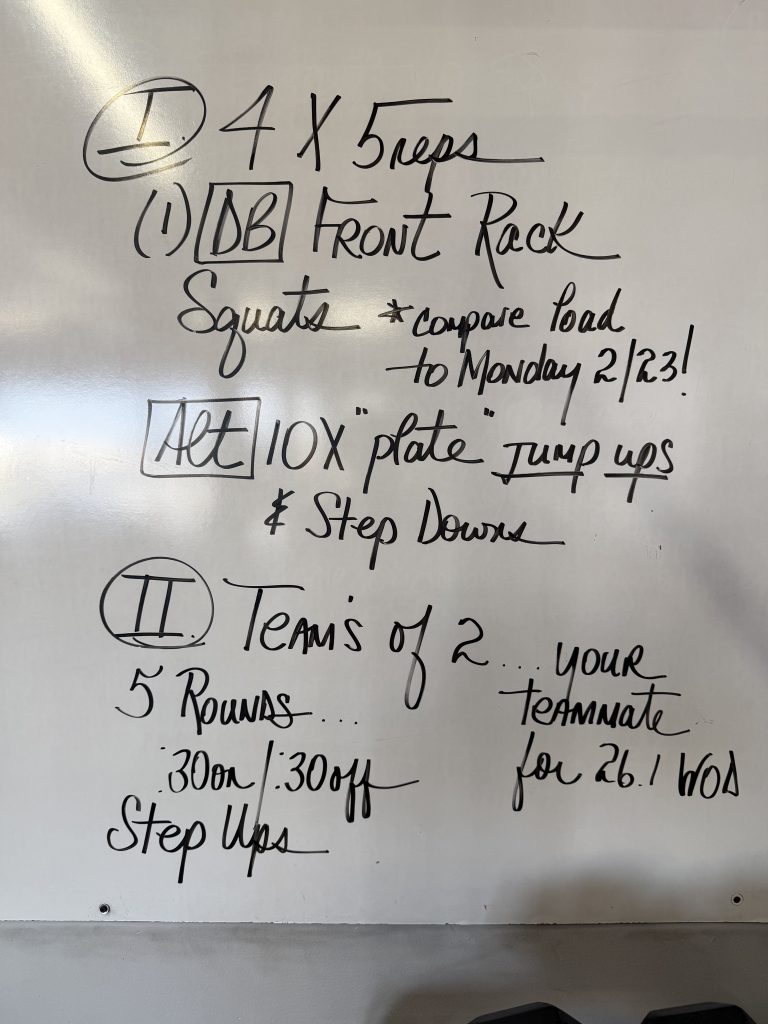 I. 4 X 5 reps
(1) DB Front Rack
Squats *compare load
to Monday 2/23!
Alt 10X "plate" Jump ups
& Step Downs
II. Team's of 2... your
teammate
for 26.1 WOD
5 Rounds...
:30on/:30off
Step Ups